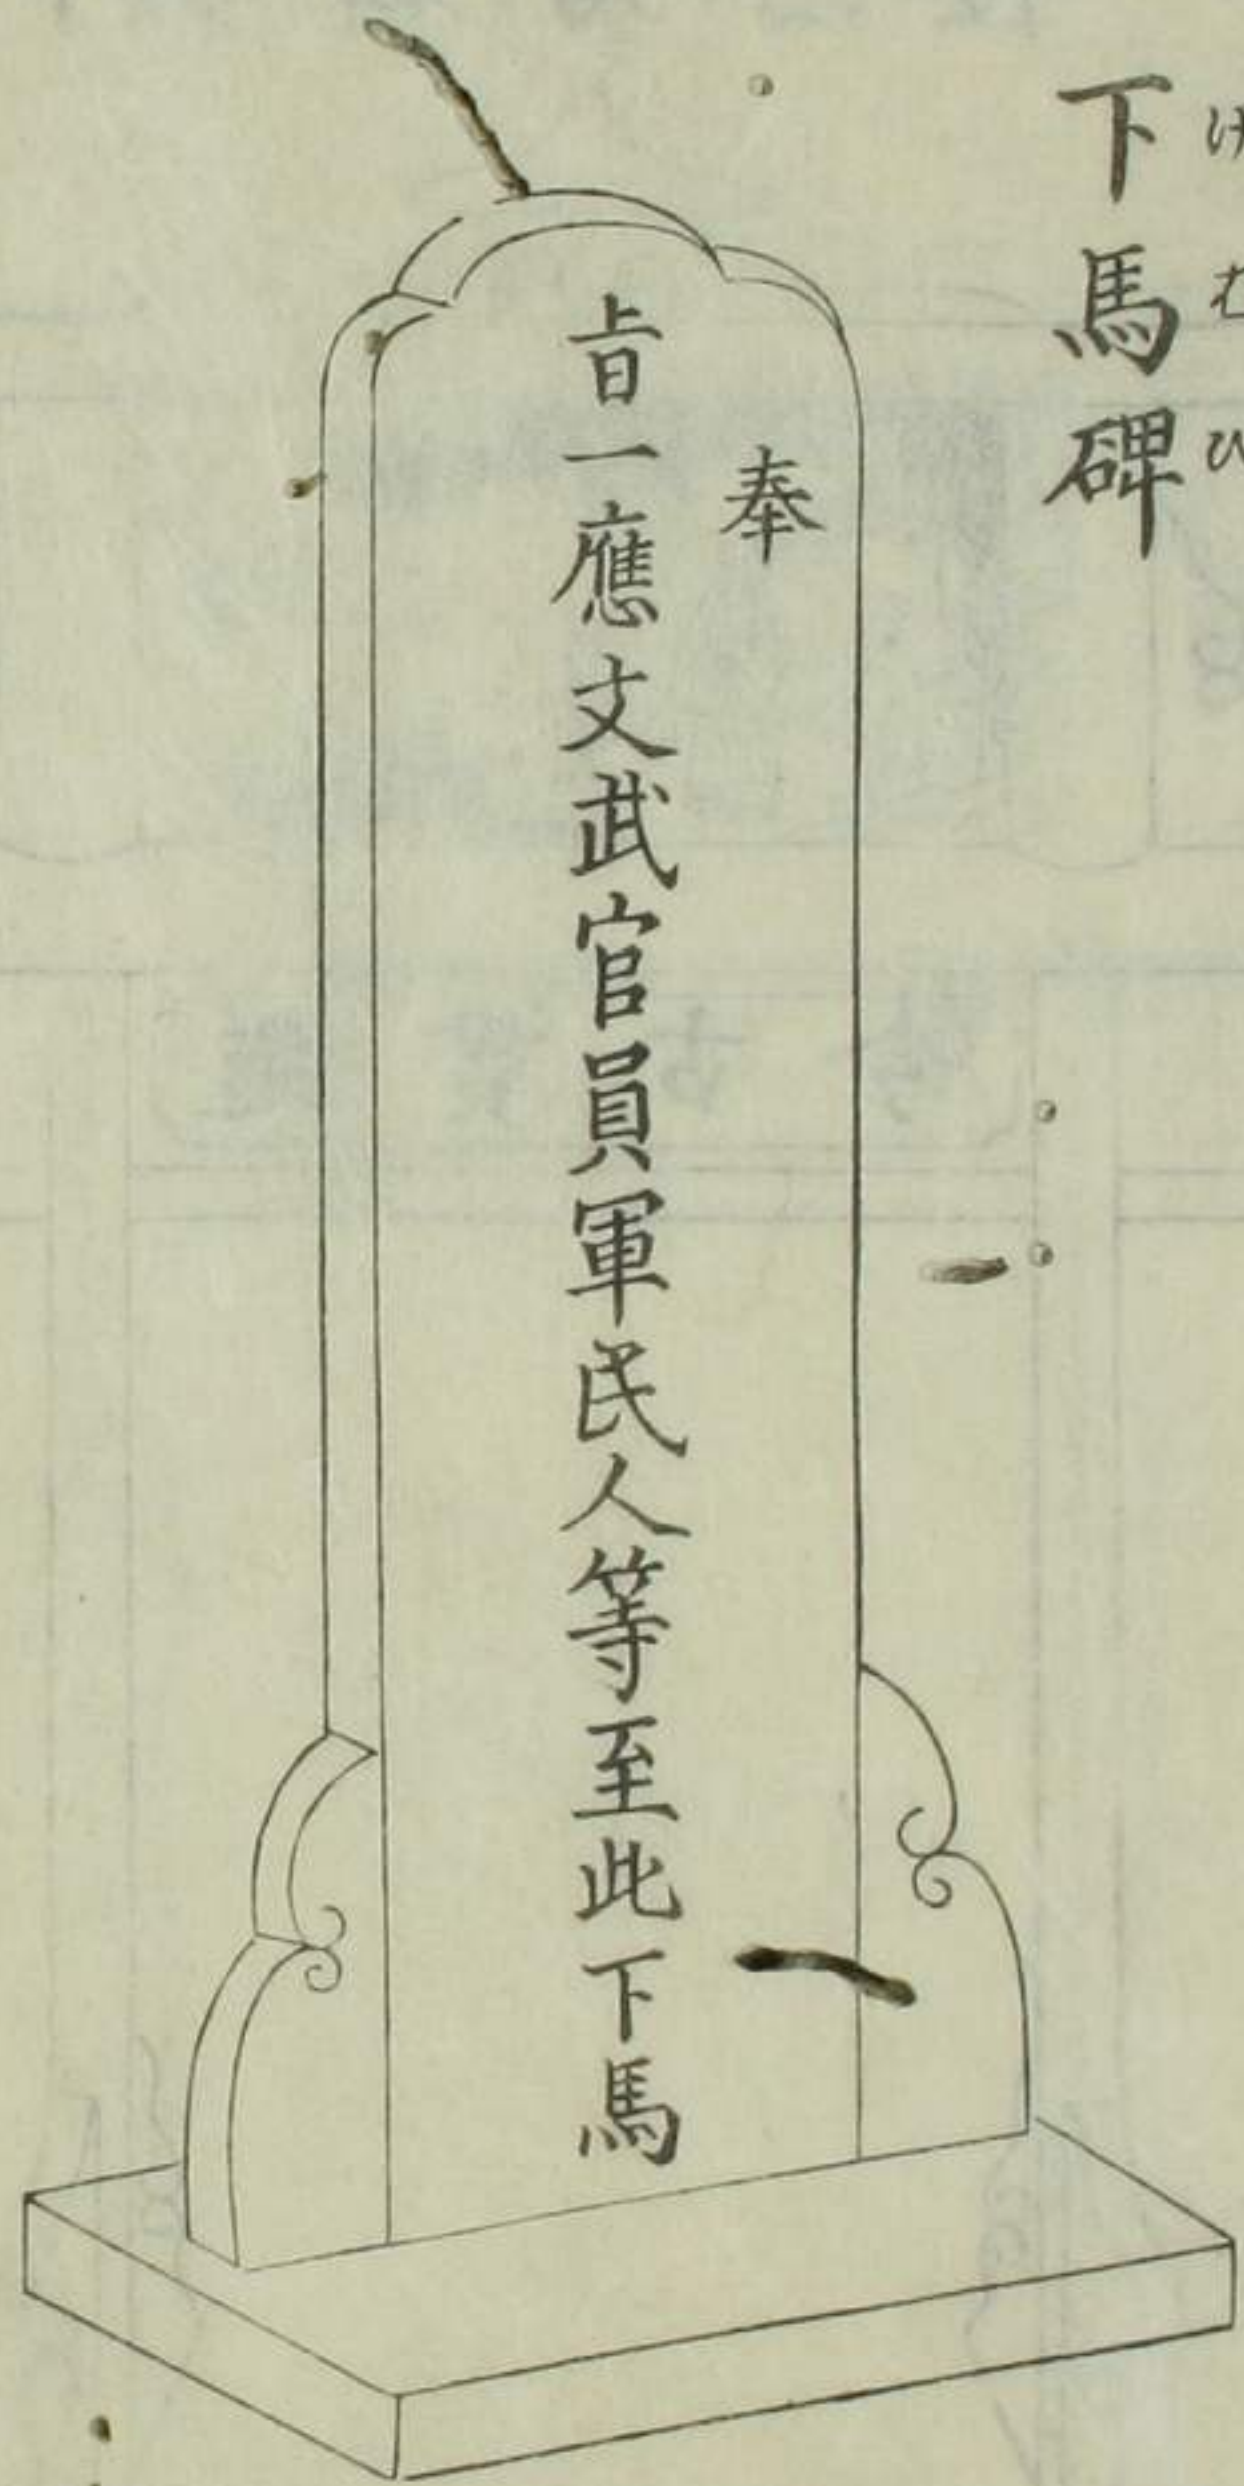 下馬碑
けむひ
奉
旨一應文武官員軍民人等至此下馬